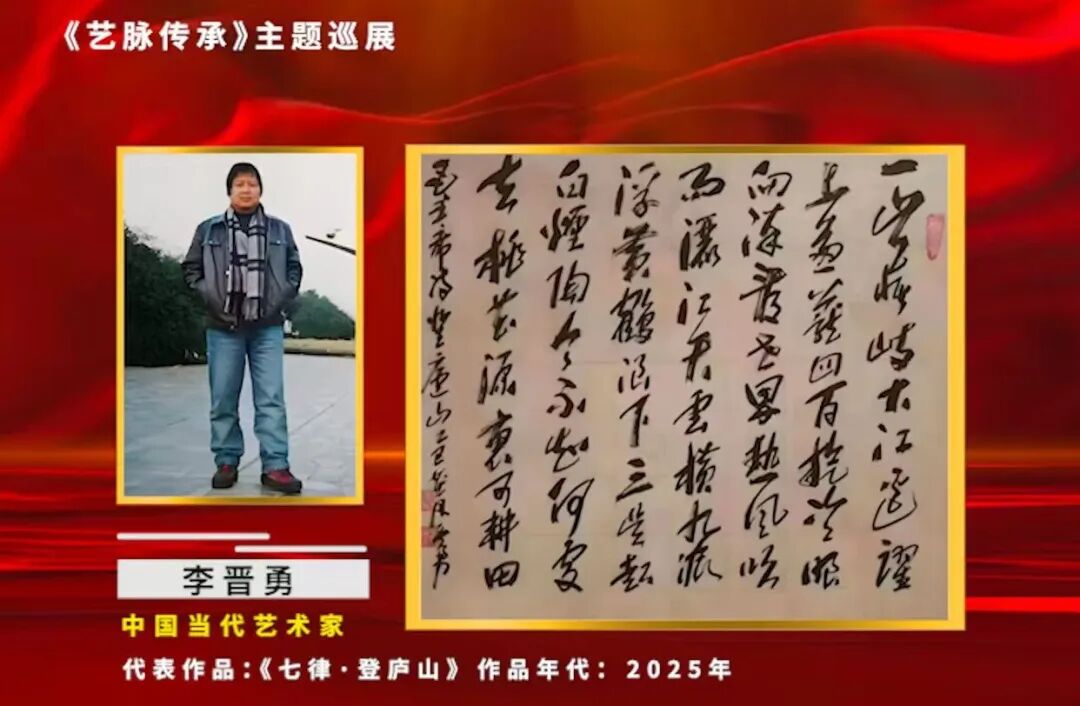 《艺脉传承》主题巡展
一山飛峙大江邊躍
上葱蘢四百旋冷眼
向洋看世界熱風吹
雨灑江天雲橫九派
浮黄鶴浪下三吴起
白煙陶令不知何處
去桃花源裏可耕田
毛主席詩登廬山乙巳
李晋勇
中国当代艺术家
代表作品:《七律·登庐山》 作品年代：2025年